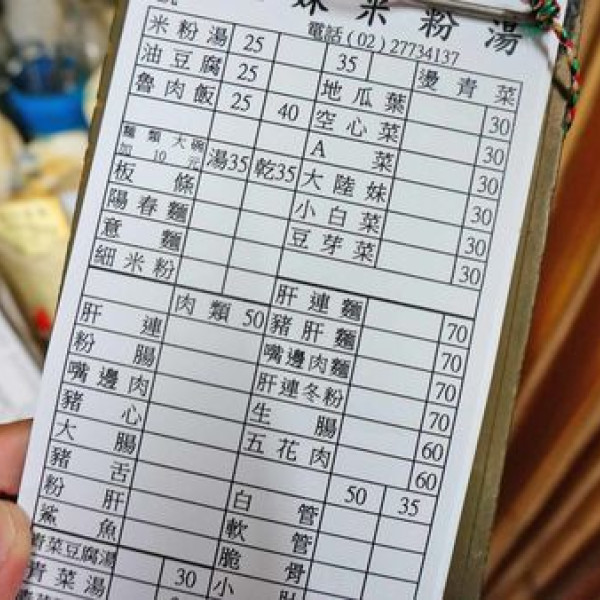 妹米粉湯
電話(02)27734137
米粉湯 25 35 燙青菜
油豆腐 25 地瓜葉 30
魯肉飯 25 40 空心菜 30
麵類大碗加10元 湯35 乾35 A菜 30
板條 大陸妹 30
陽春麵 小白菜 30
意麵 豆芽菜 30
細米粉
肉類50 肝連麵 70
肝連 豬肝麵 70
粉腸 嘴邊肉麵 70
嘴邊肉 肝連冬粉 70
豬心 生腸 60
大腸 五花肉 60
豬舌 50 35
粉肝 白管
鯊魚 軟管
青菜豆腐湯 脆骨
青菜湯 30 小肚